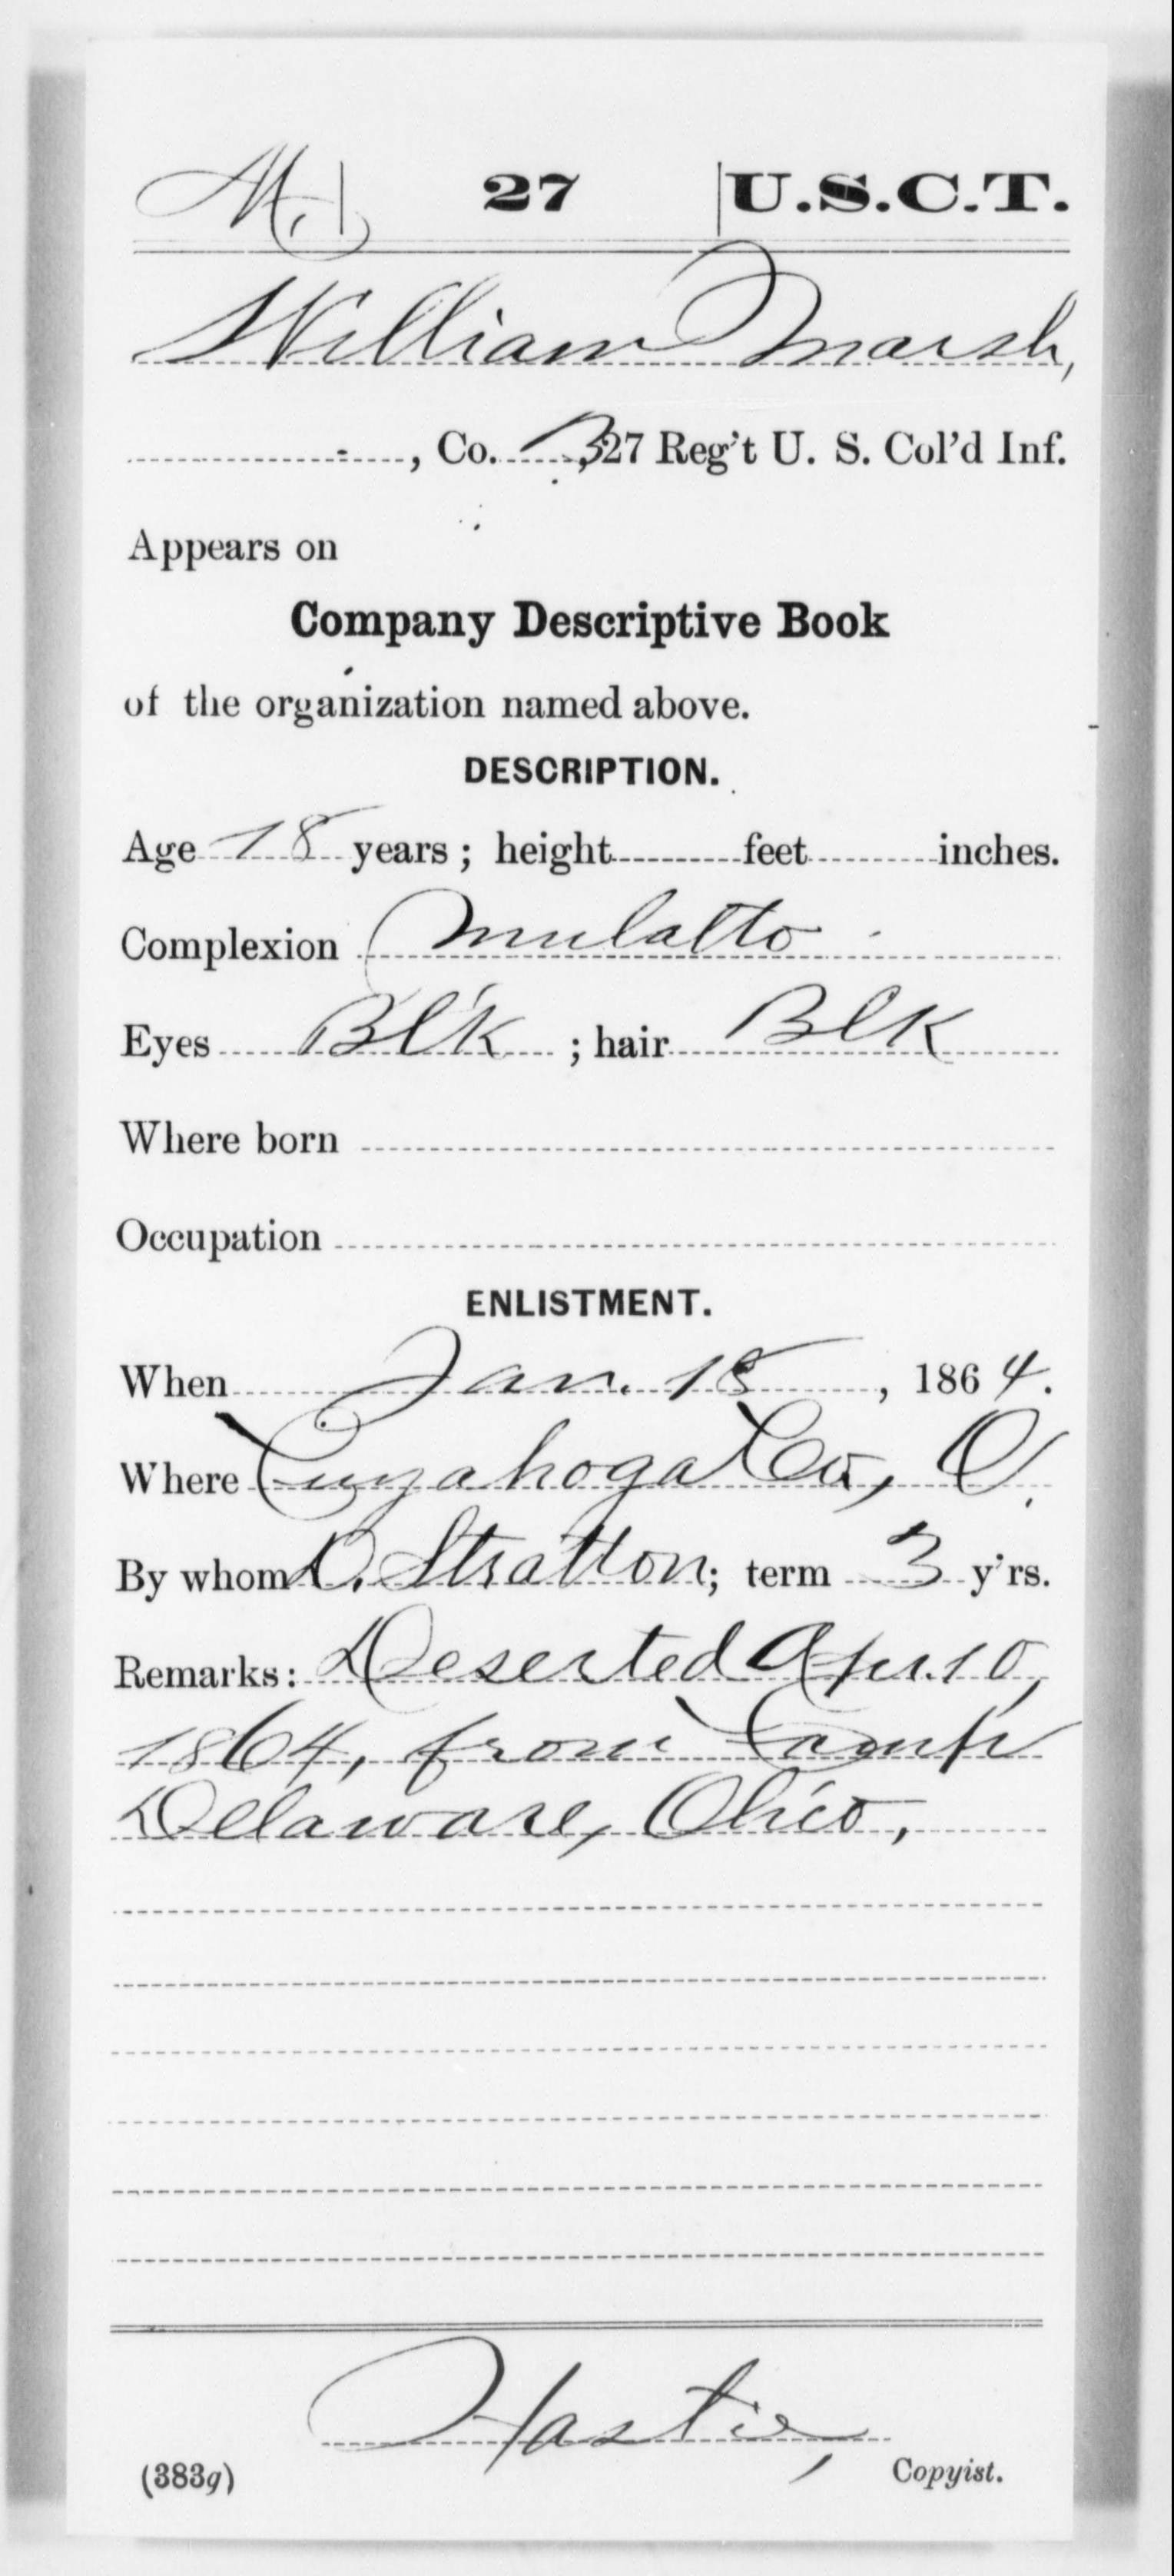 M. | 27 | U.S.C.T.
William Marsh,
, Co. B, 27 Reg't U. S. Col'd Inf.
Appears on
Company Descriptive Book
of the organization named above.
DESCRIPTION.
Age 18 years; height feet inches.
Complexion Mulatto
Eyes Blk ; hair Blk
Where born
Occupation
ENLISTMENT.
When Jan. 18, 1864.
Where Cuyahoga Co, O.
By whom D. Stratton; term 3 y'rs.
Remarks: Deserted Apr. 10,
1864, from Camp
Delaware, Ohio,
Hastie,
(383g) Copyist.